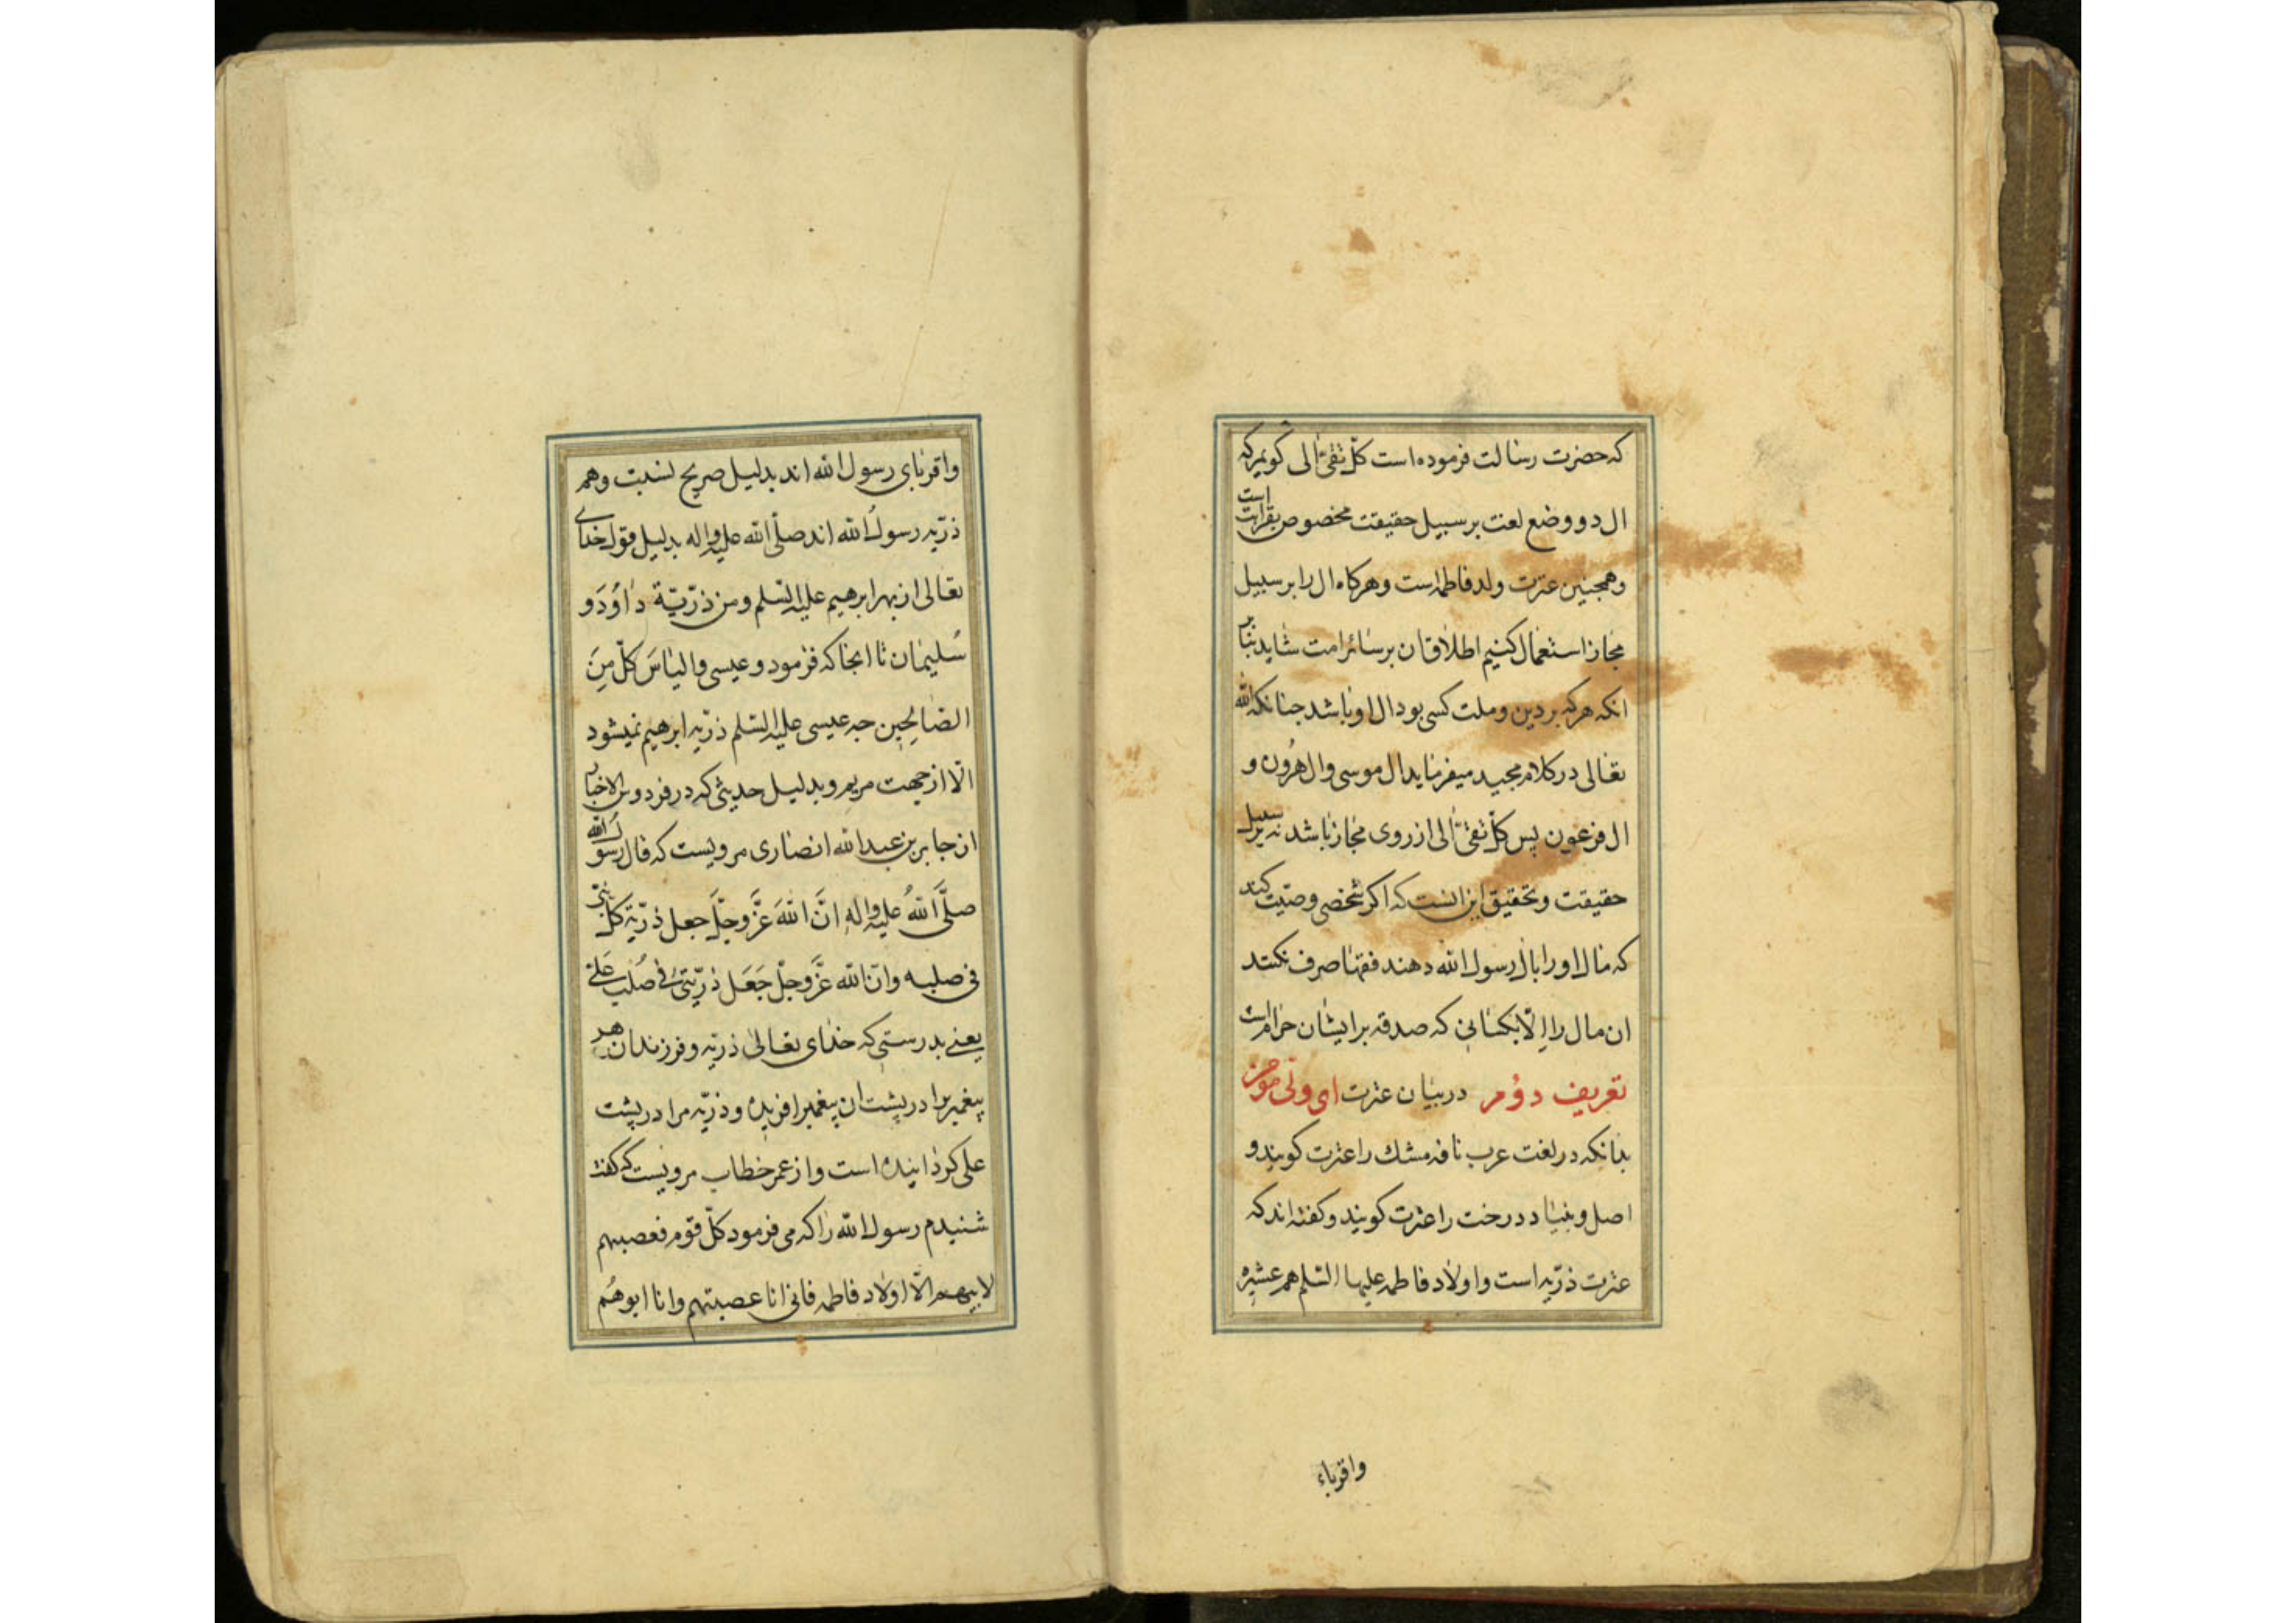 که حضرت رسالت فرموده است کلّ تقیّ الی گویم که
ال دو وضع لغت بر سبیل حقیقت مخصوص بقرابت است
وهمچنین عترت ولد فاطمه است وهرکاه ال را بر سبیل
مجاز استعمال کنیم اطلاق ان بر سائر امت شاید بنا بر
انکه هرکه بر دین وملت کسی بود ال او باشد جنانکه الله
تعالی در کلام مجید میفرماید ال موسی وال هرُون و
ال فرعون پس کلّ تقیّ الی از روی مجاز باشد نه بر سبیل
حقیقت وتحقیق این انست که اکر شخصی وصیّت کند
که مال او را بال رسول الله دهند فقها صرف نکنند
ان مال را الّا بکسانی که صدقه بر ایشان حرام است
تعریف دوُم در بیان عترت ای ولی مومن
بدانکه در لغت عرب نافه مشك را عترت کویند و
اصل و بنیاد درخت را عترت کویند و کفته اند که
عترت ذرّیه است واولاد فاطمه علیها السّلم هم عشیره
واقرباء
واقربای رسول الله اند بدلیل صریح نسبت وهم
ذرّیه رسول الله اند صلّی الله علیه واله بدلیل قول خدای
تعالی از بهر ابرهیم علیه السّلم ومن ذرّیّة داوُدَ و
سُلیمان تا انجا که فرمود وعیسی والیاسَ کلّ مِنَ
الصّالِحین جه عیسی علیه السّلم ذرّیه ابرهیم نمیشود
الّا از جهت مریم وبدلیل حدیثی که در فردوس الاخبار
از جابر بن عبد الله انصاری مرویست که قال رسول الله
صلّی اللهُ علیه واله انَّ اللهَ عزَّ وجلَّ جعل ذرّیّة کلّ نبیّ
فی صلبه وانّ الله عزَّ وجلّ جَعَل ذرّیّتی فی صُلب علی
یعنی بدرستی که خدای تعالی ذریّه وفرزندان هر
پیغمبر را در پشت ان پیغمبر افریده وذرّیه مرا در پشت
علی کردانیده است واز عمر خطاب مرویست که کفت
شنیدم رسول الله را که می فرمود کلّ قوم فعصبتهم
لابیهم الّا اولاد فاطمه فانی انا عصبتهم وانا ابوهُم